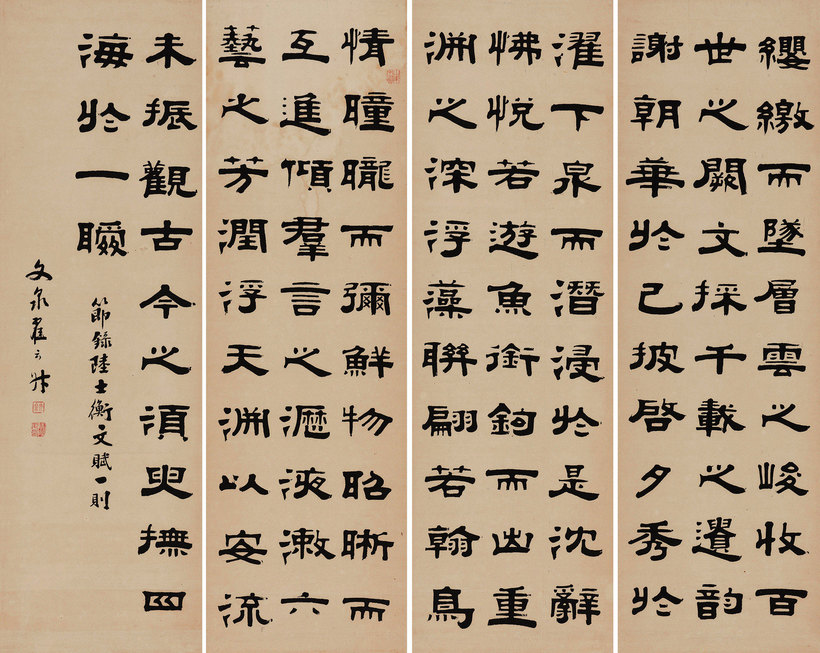 情曈曨而彌鮮物昭晰而
互進傾羣言之瀝液漱六
藝之芳潤浮天淵以安流
濯下泉而潛浸於是沈辭
怫悅若遊魚銜鉤而出重
淵之深浮藻聯翩若翰鳥
纓繳而墜層雲之峻收百
世之闕文採千載之遺韻
謝朝華於已披啓夕秀於
未振觀古今之須臾撫四
海於一瞬
節錄陸士衡文賦一則
文泉翟云升